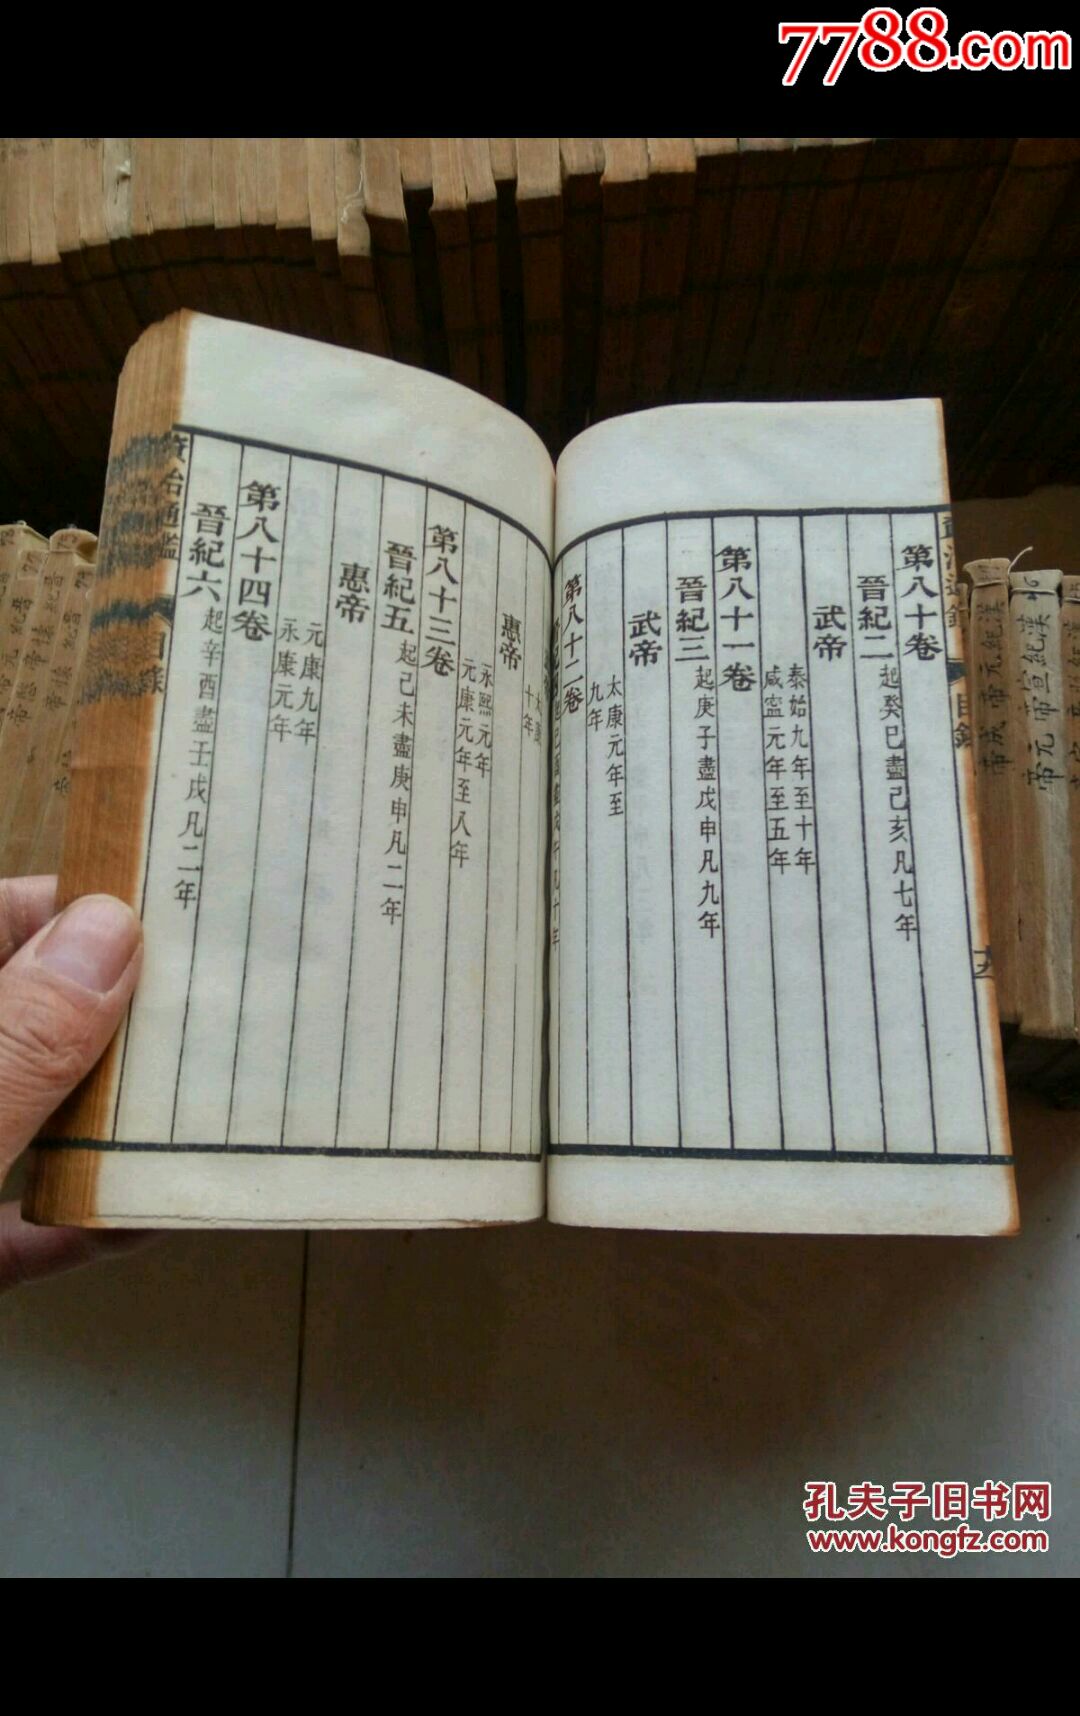 7788.com
第八十卷
晉紀二起癸巳盡己亥凡七年
武帝
泰始九年至十年
咸寧元年至五年
第八十一卷
晉紀三起庚子盡戊申凡九年
武帝
太康元年至
九年
第八十二卷
惠帝
永熙元年
元康元年至八年
第八十三卷
晉紀五起己未盡庚申凡二年
惠帝
元康九年
永康元年
第八十四卷
晉紀六起辛酉盡壬戌凡二年
資治通鑑
目錄
漢紀元帝成帝
漢紀宣帝元帝
孔夫子旧书网
www.kongfz.com